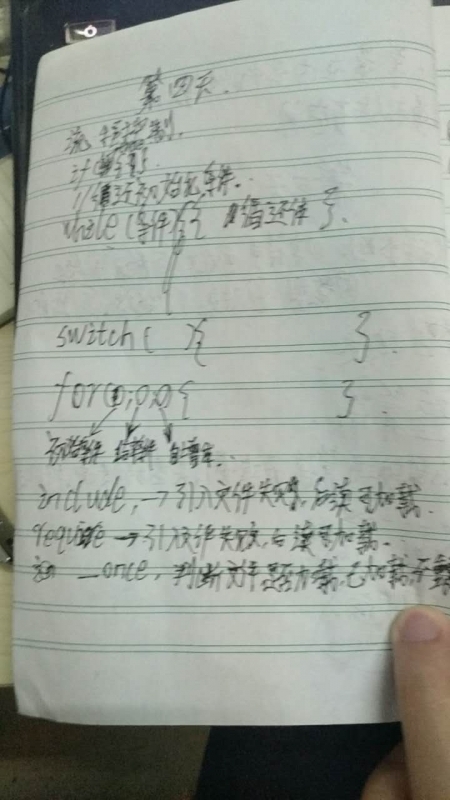 第四天.
流程控制.
if(
//循环初始化条件.
while(条件){ 循环体 }.
switch( ){ }.
for(0;0;0{ }.
初始条件 结条件 自增体.
include,→引入文件失败,后续可加载.
require→引入文件失败,后续可加载.
_once,判断文件是否加载,已加载,不载